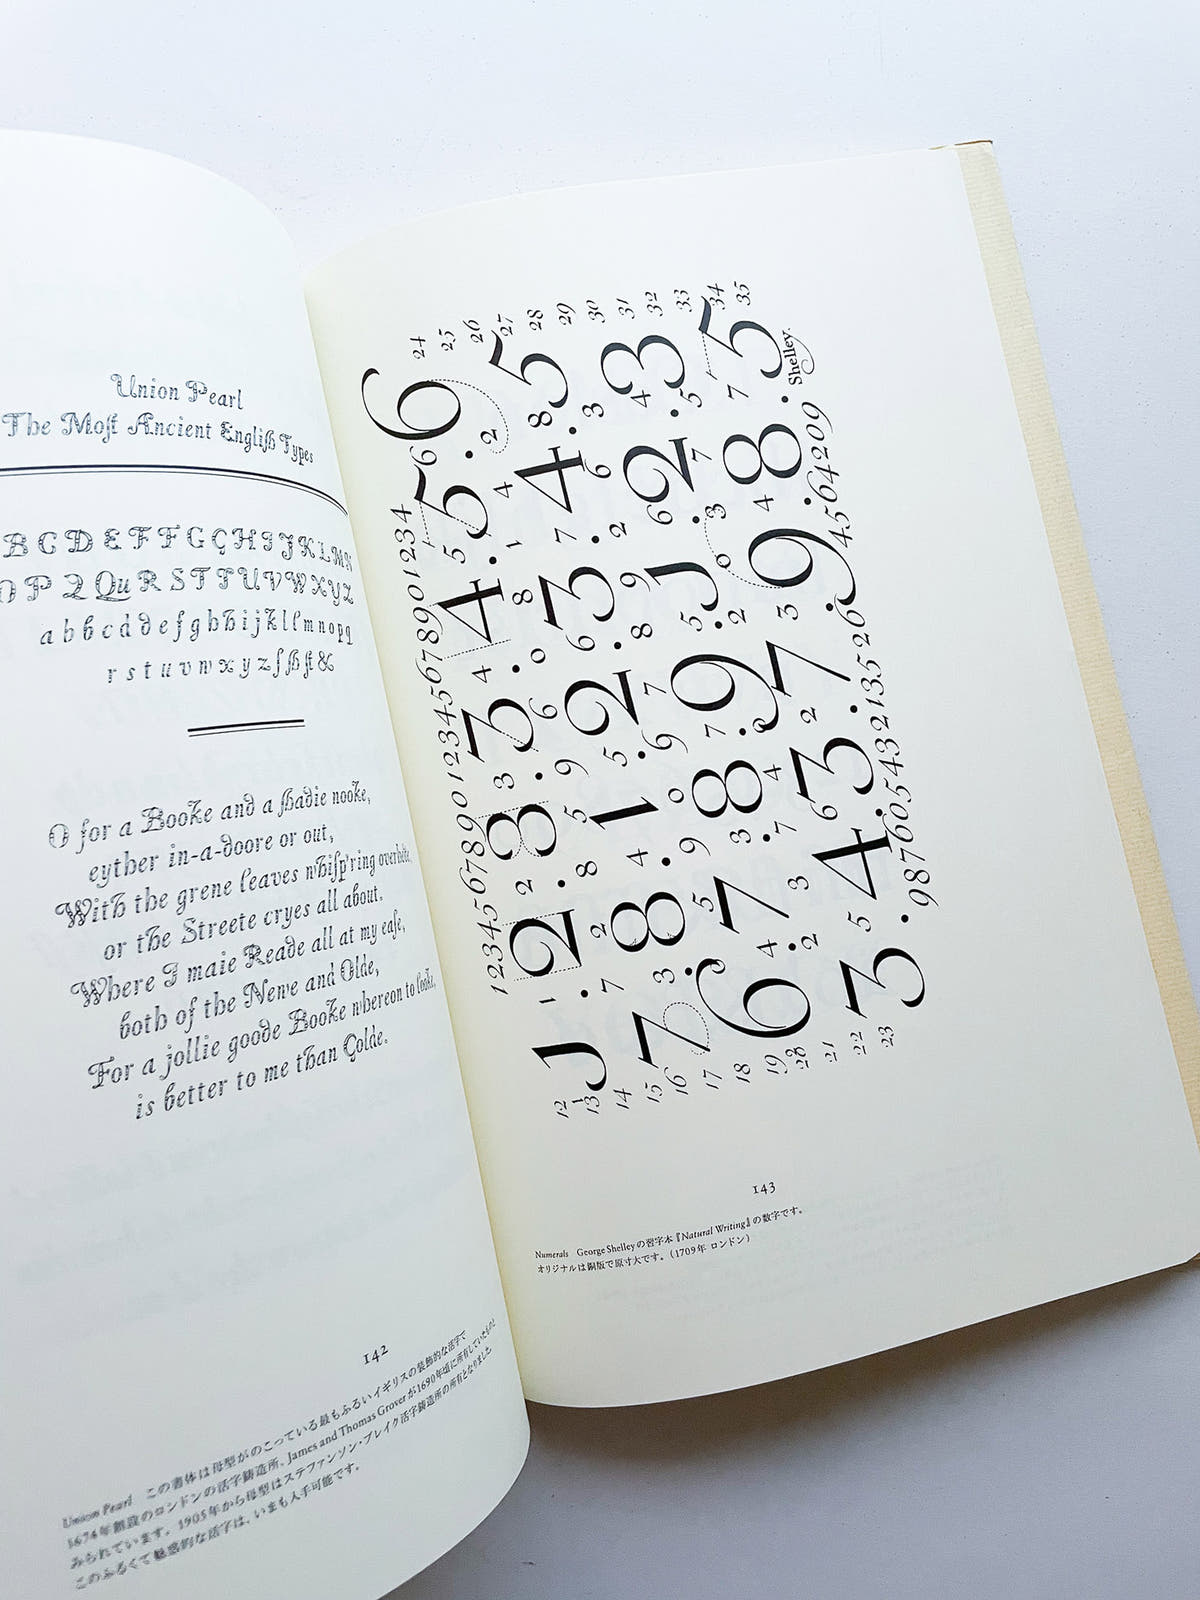 Union Pearl
The Moſt Ancient Engliſh Types
B C D E F F G G H I J K L M N
O P Q Qu R S T T U V W X Y Z
a b b c d d e f g h h i j k l l m n o p q
r s t u v w x y z ſ ſh ſt &
O for a Booke and a ſhadie nooke,
eyther in-a-doore or out,
With the grene leaves whiſp'ring overhede,
or the Streete cryes all about.
Where I maie Reade all at my eaſe,
both of the Newe and Olde,
For a jollie goode Booke whereon to looke,
is better to me than Golde.
142
Union Pearl この書体は母型がのこっている最もふるいイギリスの装飾的な活字で
1674年創設のロンドンの活字鋳造所、James and Thomas Groverが1690年頃に所有していたものと
みられています。1905年から母型はステファンソン・ブレイク活字鋳造所の所有となりました。
このふるくて魅惑的な活字は、いまも入手可能です。
24 25 26 27 28 29 30 31 32 33 34 35
1234567890 1234567890 1234
J . 2 . 8 . 3 . 4 . 5 . 6
7 . 8 . 1 . 2 . 3 . 4 . 5
6 . 7 . 8 . 9 . J . 2 . 3
3 . 4 . 3 . 7 . 9 . 8 . 5
Shelley.
12 13 14 15 16 17 18 19 20 21 22 23
143
Numerals George Shelleyの習字本『Natural Writing』の数字です。
オリジナルは銅版で原寸大です。(1709年 ロンドン)